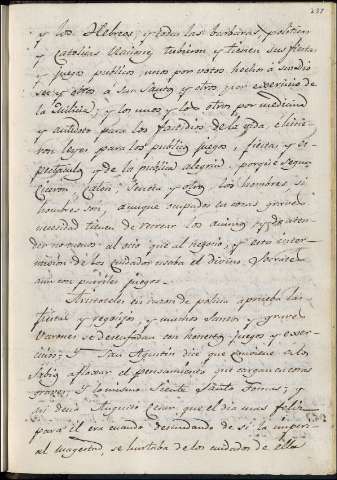 y los Hebreos, y todas las barbaras, politicas
y Catolicas Naciones tubieron y tienen sus fiestas
y juegos publicos unos por votos hechos à sus Dio
ses y otros à sus Santos y otros por exercicio de
la Milicia; y los unos y los otros por medicina
y antidoto para los fastidios de la vida, è hicie-
ron leyes para los publicos juegos, fiestas, y es-
pectaculos y de la publica alegria, porque segun
Ciceron Caton; Seneca y otros, los hombres, si
hombres son, aunque ocupados en cosas graves
necesidad tienen de recrear los animos, y de aten-
der no menos al ocio que al negocio, y esta inter-
mision de los cuidados usaba el divino Socrates
aun con pueriles juegos.
Aristoteles en razon de policia aprueba las
fiestas y regocijos, y muchos Santos y graves
Varones se desenfadan con honestos juegos y exer-
cicios; Y San Agustin dice que conviene à los
Sabios afloxar el pensamiento que cargan en cosas
graves; Y lo mismo siente Santo Tomas; y
asi decia Augusto Cesar, que el dia mas feliz
para èl era cuando desnudando de si la imperi-
al magestad, se hurtaba de los cuidados de ella